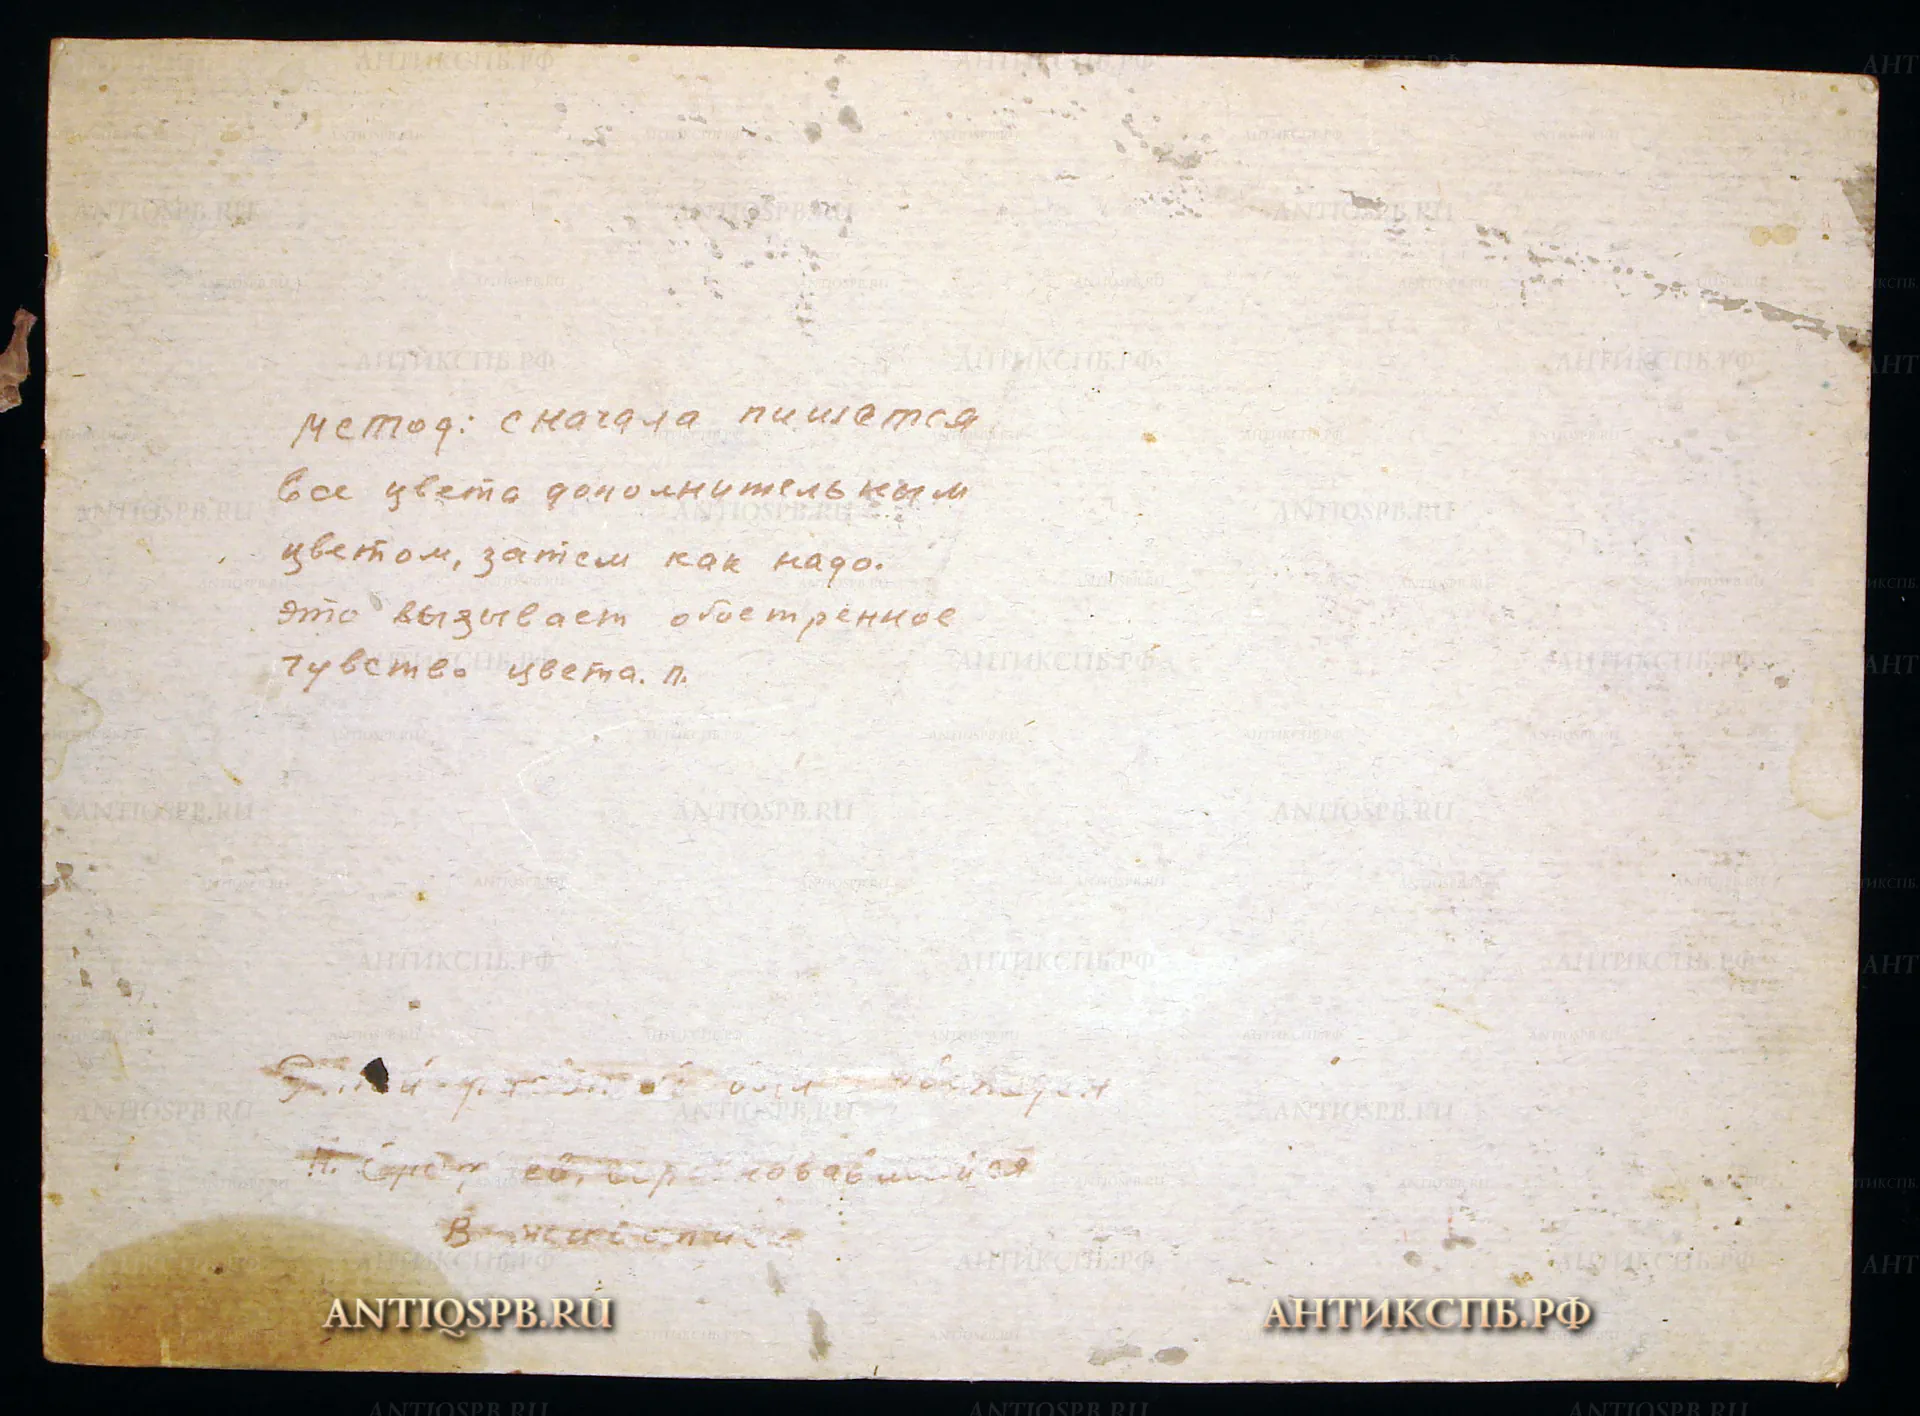 метод: сначала пишется
все цвета дополнительным
цветом, затем как надо.
это вызывает обостренное
чувство цвета. п.
был
В живописи
ANTIQSPB.RU
АНТИКСПБ.РФ